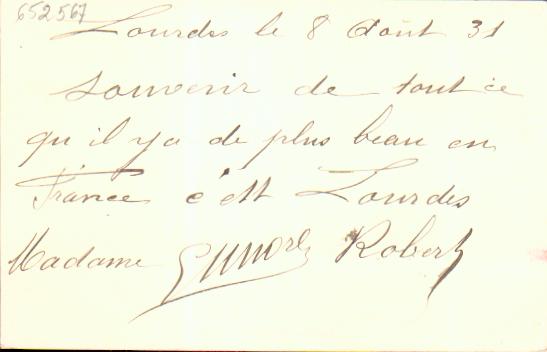 652567
Lourdes le 8 Août 31
Souvenir de tout ce
qu il y a de plus beau en
France c'est Lourdes
Madame Robert